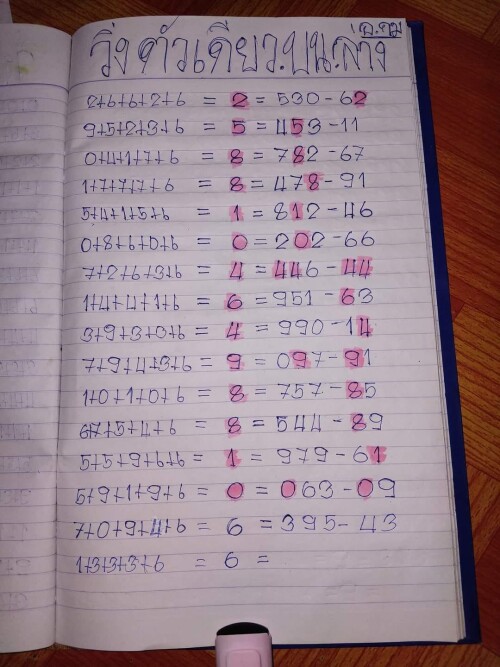 อ.กบ
วิ่งตัวเดียว.บน.ล่าง
2+6+6+2+6 = 2 = 530-62
9+5+2+3+6 = 5 = 453-11
0+4+1+7+6 = 8 = 782-67
1+7+7+7+6 = 8 = 478-91
5+4+1+5+6 = 1 = 812-46
0+8+6+0+6 = 0 = 202-66
7+2+6+3+6 = 4 = 446-44
1+4+4+1+6 = 6 = 951-63
3+9+3+3+6 = 4 = 990-14
7+9+4+3+6 = 9 = 097-91
1+0+1+0+6 = 8 = 757-85
6+7+5+4+6 = 8 = 544-89
5+5+9+6+6 = 1 = 979-61
5+9+1+9+6 = 0 = 063-09
7+0+9+4+6 = 6 = 395-43
1+3+3+3+6 = 6 =